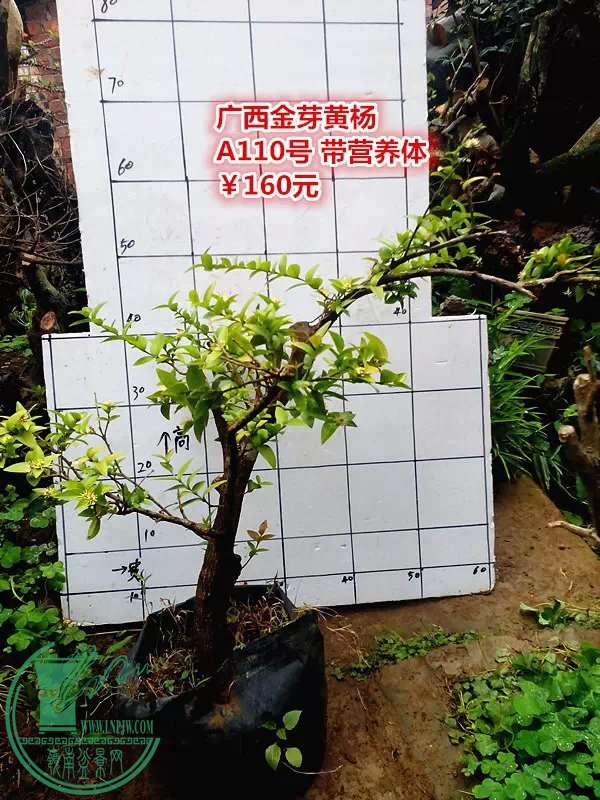 80
70
广西金芽黄杨
A110号 带营养体
￥160元
60
50
40
40
30
↑高
20
10
→宽
10
40
50
60
WWW.LNPJW.COM
岭南盆景网